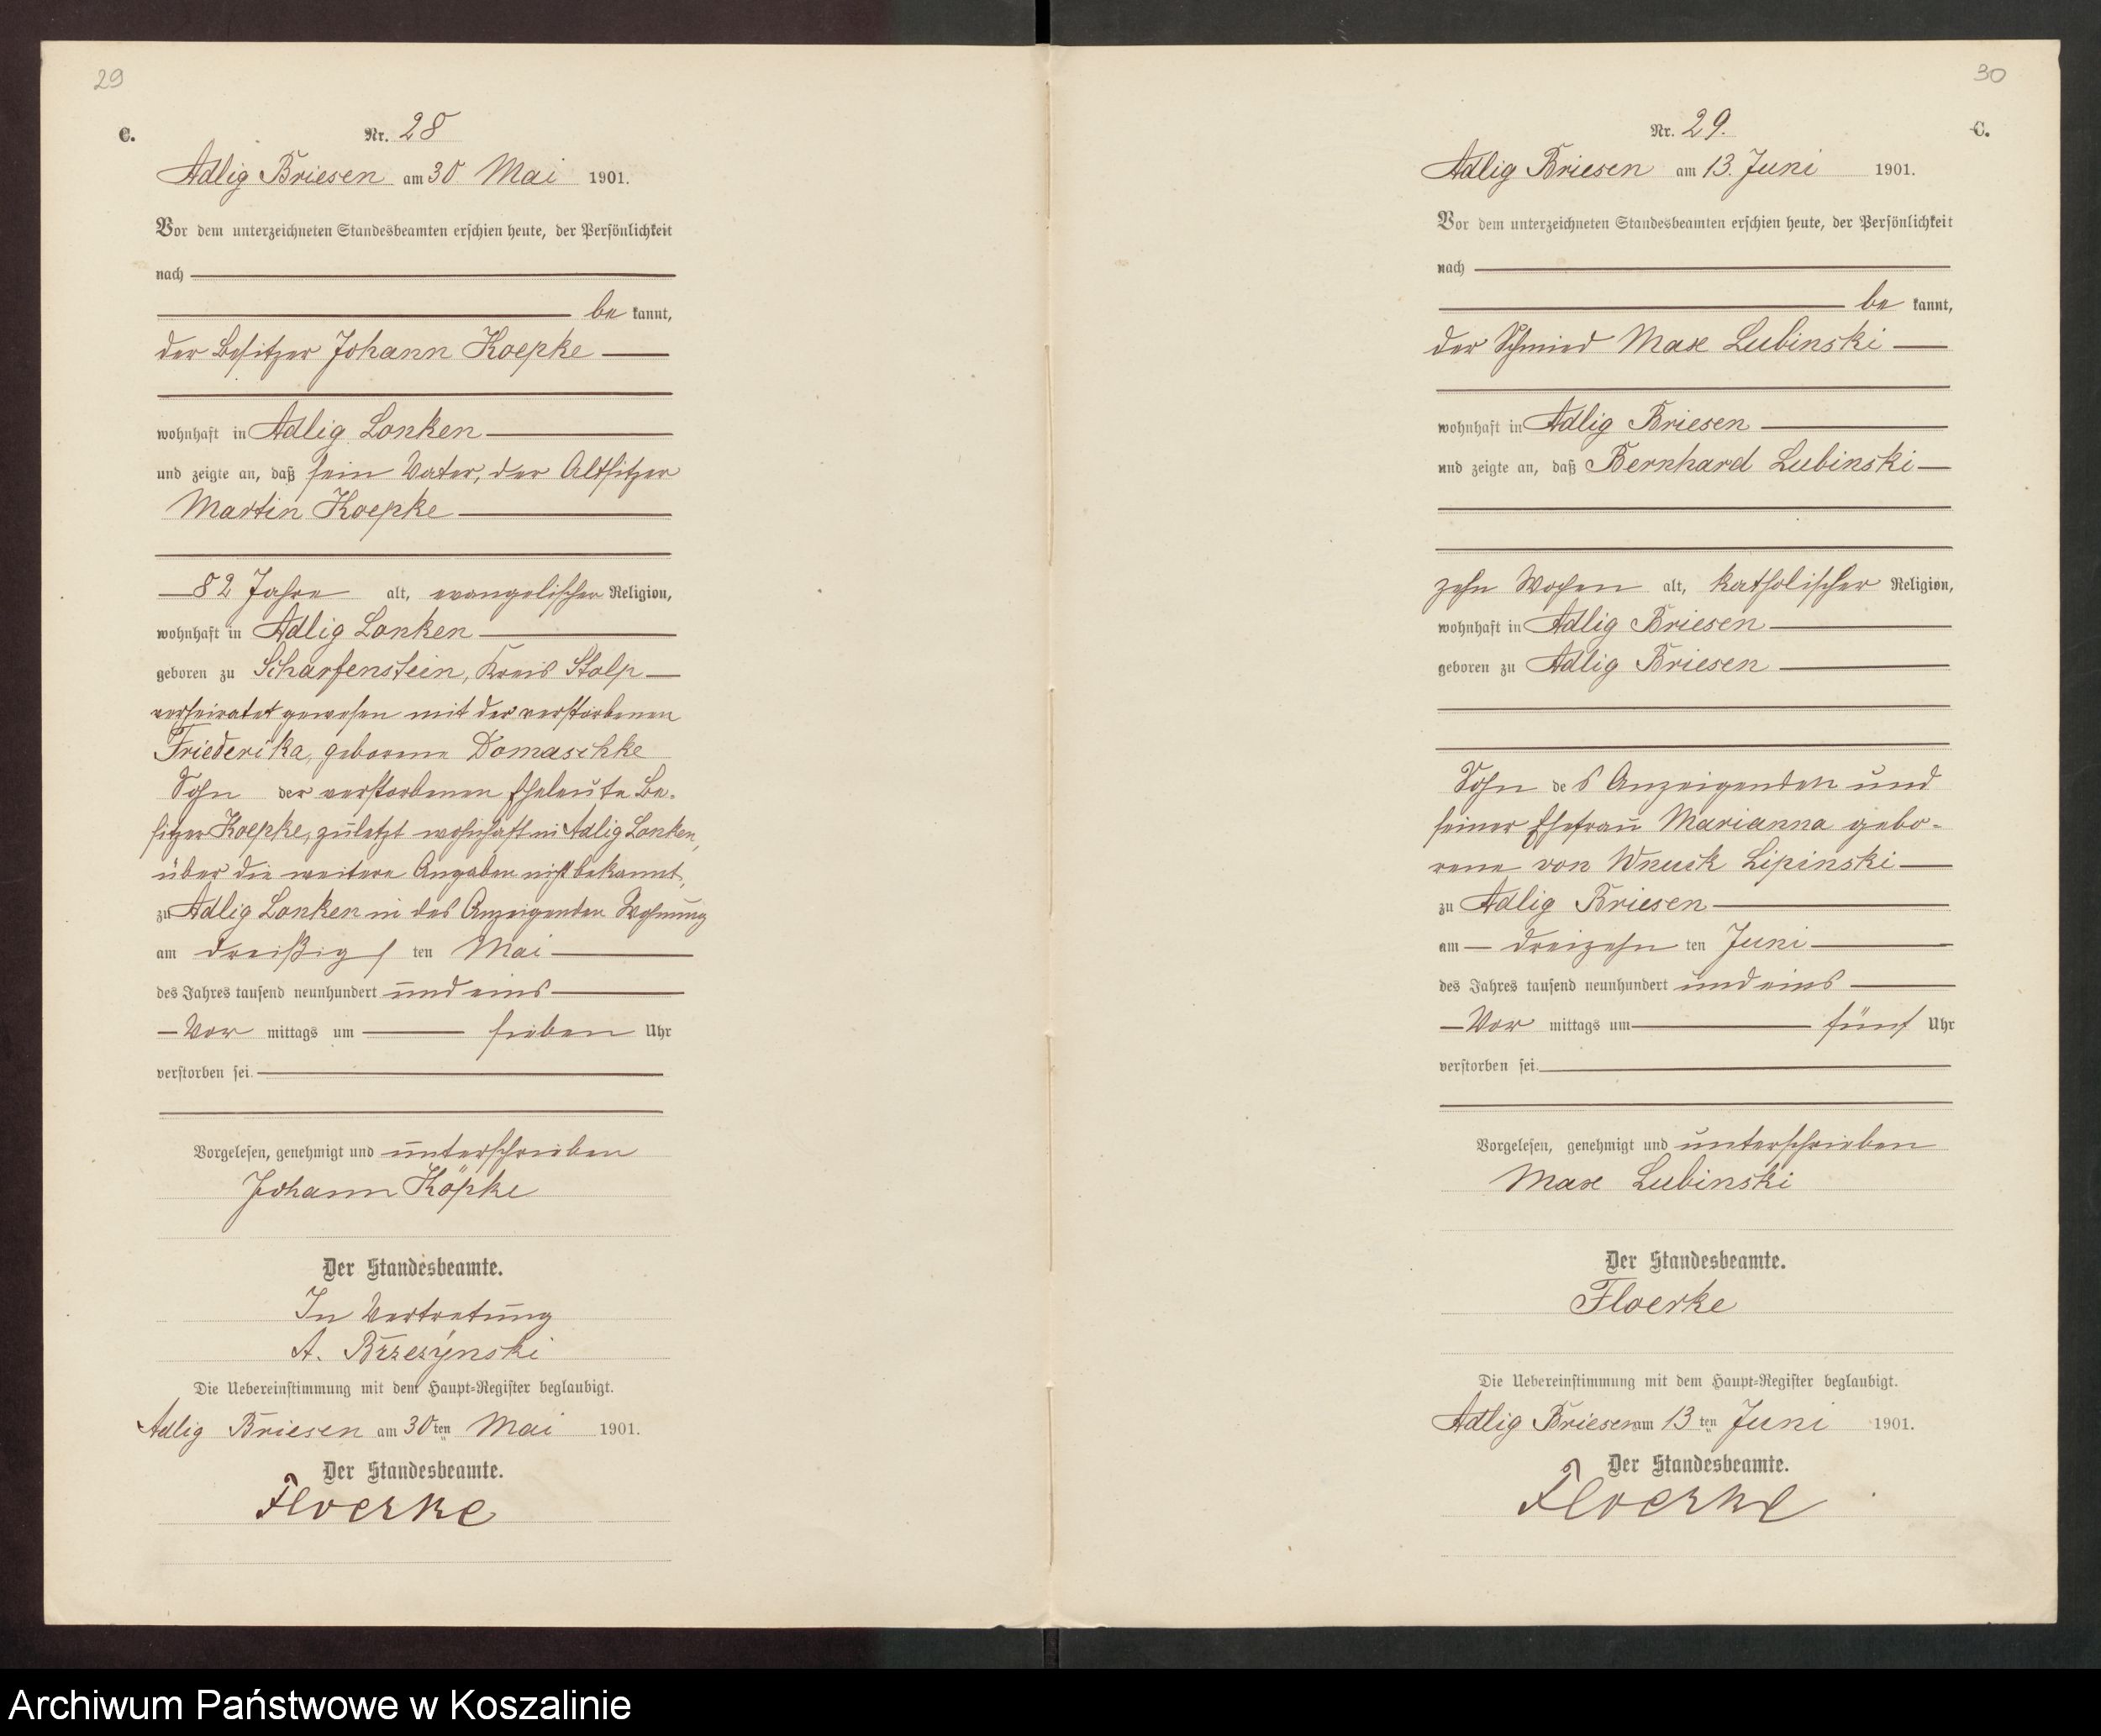 29
C.
Nr. 28
Adlig Briesen am 30 Mai 1901.
Vor dem unterzeichneten Standesbeamten erschien heute, der Persönlichkeit
nach
be kannt,
der Besitzer Johann Koepke
wohnhaft in Adlig Lonken
und zeigte an, daß sein Vater, der Altsitzer
Martin Koepke
82 Jahre alt, evangelischer Religion,
wohnhaft in Adlig Lonken
geboren zu Scharfenstein, Kreis Stolp
verheiratet gewesen mit der verstorbenen
Friederika, geborene Domaschke
Sohn der verstorbenen Eheleute Be-
sitzer Koepke, zuletzt wohnhaft in Adlig Lonken,
über die weitere Angaben nicht bekannt,
zu Adlig Lonken in des Anzeigenden Wohnung
am dreißigsten Mai
des Jahres tausend neunhundert und eins
Vor mittags um sieben Uhr
verstorben sei.
Vorgelesen, genehmigt und unterschrieben
Johann Köpke
Der Standesbeamte.
In Vertretung
A. Brzezynski
Die Uebereinstimmung mit dem Haupt-Register beglaubigt.
Adlig Briesen am 30ten Mai 1901.
Der Standesbeamte.
Floerke
30
C.
Nr. 29.
Adlig Briesen am 13. Juni 1901.
Vor dem unterzeichneten Standesbeamten erschien heute, der Persönlichkeit
nach
be kannt,
der Schmied Max Lubinski
wohnhaft in Adlig Briesen
und zeigte an, daß Bernhard Lubinski
zehn Wochen alt, katholischer Religion,
wohnhaft in Adlig Briesen
geboren zu Adlig Briesen
Sohn des Anzeigenden und
seiner Ehefrau Marianna gebo-
rene von Wnuck Lipinski
zu Adlig Briesen
am dreizehn ten Juni
des Jahres tausend neunhundert und eins
Vor mittags um fünf Uhr
verstorben sei.
Vorgelesen, genehmigt und unterschrieben
Max Lubinski
Der Standesbeamte.
Floerke
Die Uebereinstimmung mit dem Haupt-Register beglaubigt.
Adlig Briesen am 13ten Juni 1901.
Der Standesbeamte.
Floerke
Archiwum Państwowe w Koszalinie